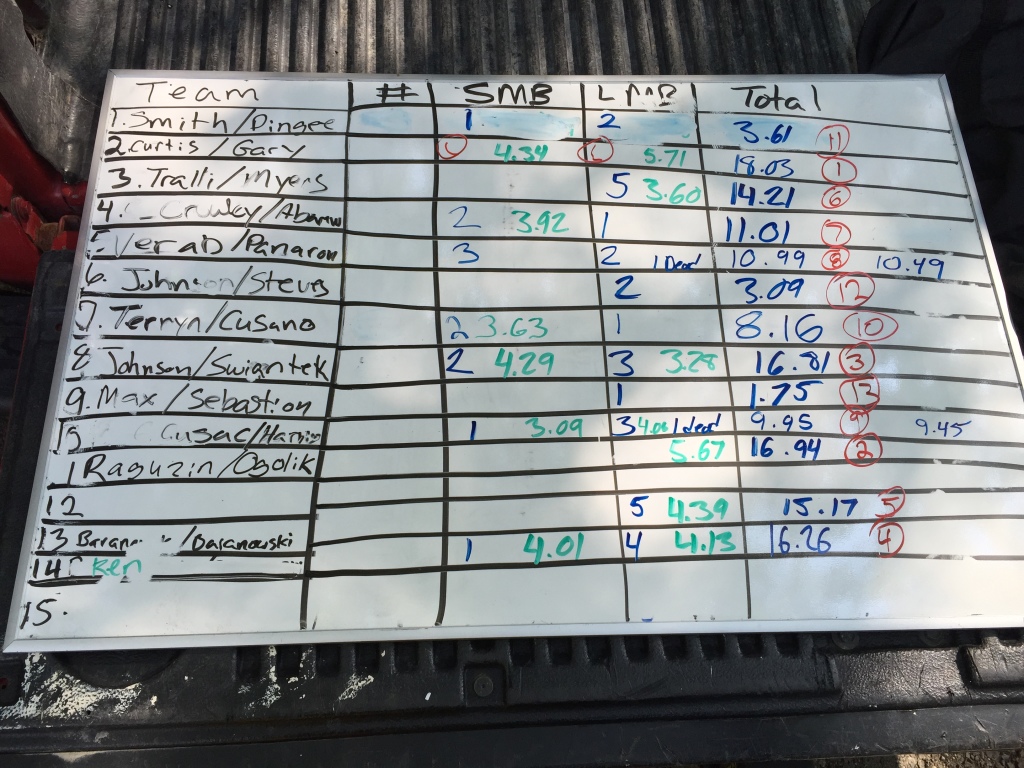 Team # SMB LMB Total
1. Smith/Dingee 1 2 3.61 11
2. Curtis / Gary 4.34 5.71 18.03 1
3. Tralli/Myers 5 3.60 14.21 6
4. Crowley/ 2 3.92 1 11.01 7
5. Verab/Panaron 3 2 1 Dead 10.99 8 10.49
6. Johnson/Steves 2 3.09 12
7. Terryn/Cusano 2 3.63 1 8.16 10
8 Johnson/Swiantek 2 4.29 3 3.28 16.81 3
9. Max/Sebastion 1 1.75 13
Cusac/ 1 3.09 3 1 dead 9.95 9 9.45
11 Raguzin/Ogolik 5.67 16.94 2
12 5 4.39 15.17 5
13 /Bajanowski 1 4.01 4 4.13 16.26 4
14 Ken
15.